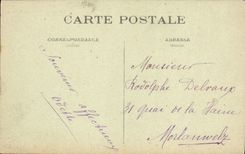 CARTE POSTALE
CORRESPONDANCE
ADRESSE
Souvenir affectueux
Odette
Monsieur
Rodolphe Delvaux
31 Quai de la Haine
Morlanwelz